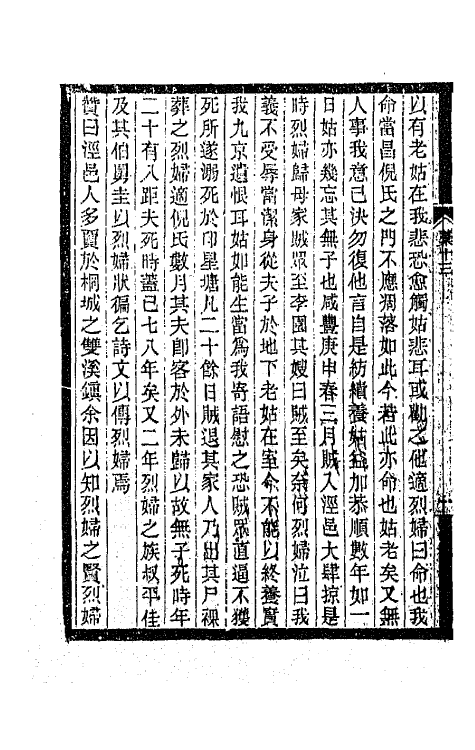 以有老姑在我悲恐愈觸姑悲耳或勸之他適烈婦曰命也我
命當昌倪氏之門不應凋落如此今若此亦命也姑老矣又無
人事我意已決勿復他言自是紡績養姑益加恭順數年如一
日姑亦幾忘其無子也咸豐庚申春三月賊入涇邑大肆掠是
時烈婦歸母家賊眾至李園其嫂曰賊至矣奈何烈婦泣曰我
義不受辱當潔身從夫子於地下老姑在室命不能以終養賢
我九京遺恨耳姑如能生當爲我寄語慰之恐賊眾直逼不獲
死所遂溺死於印星塘凡二十餘日賊退其家人乃出其尸祼
葬之烈婦適倪氏數月其夫卽客於外未歸以故無子死時年
二十有八距夫死時蓋已七八年矣又二年烈婦之族叔平佳
及其伯舅圭以烈婦狀徧乞詩文以傳烈婦焉
贊曰涇邑人多賈於桐城之雙溪鎭余因以知烈婦之賢烈婦